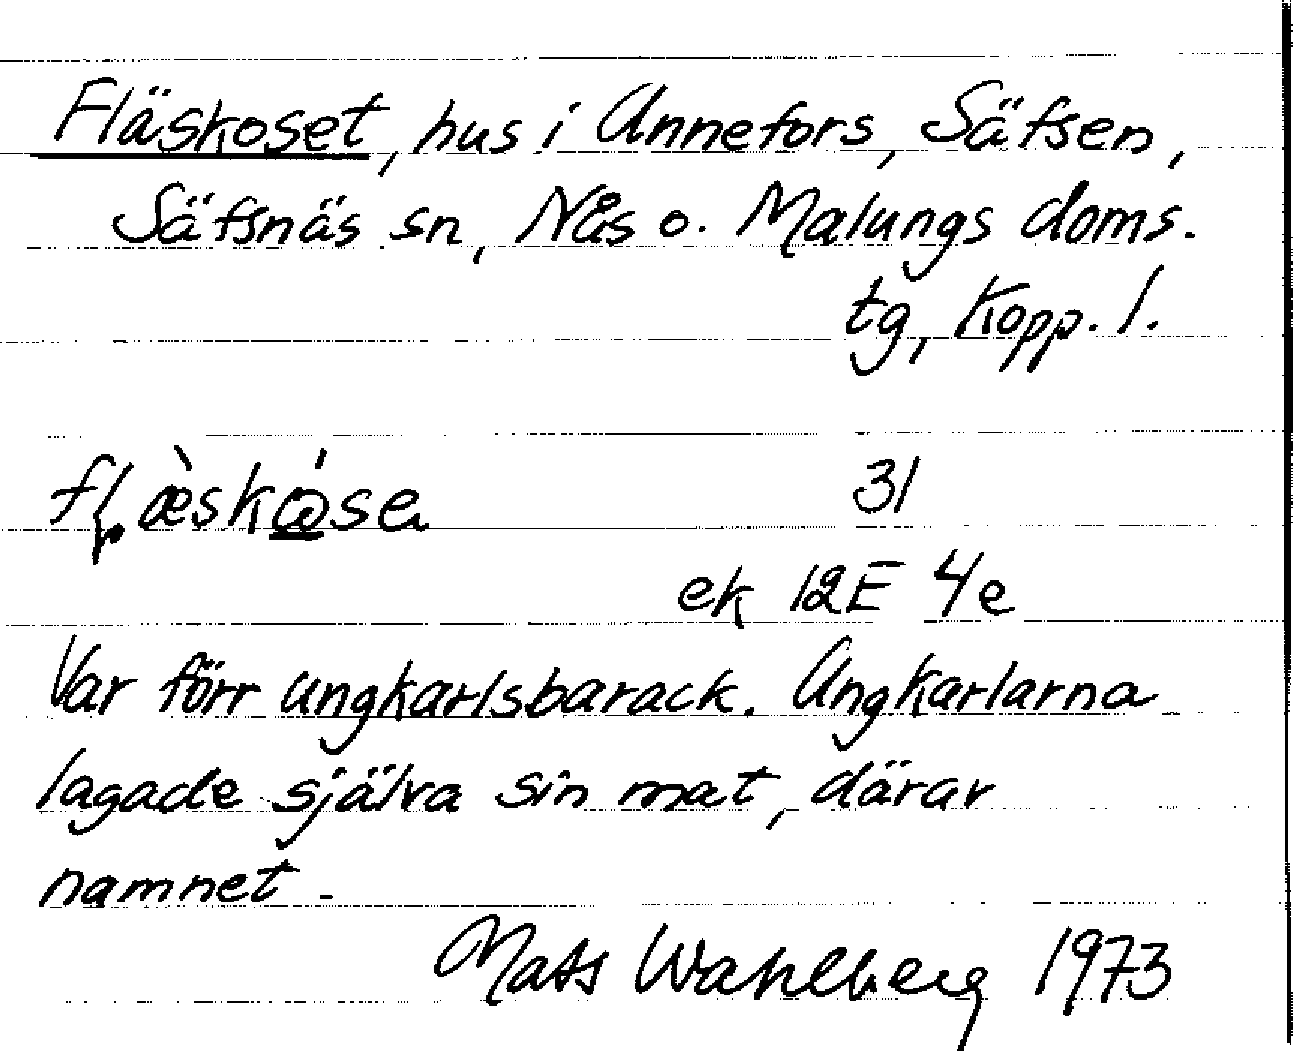 Fläskoset, hus i Annefors, Säfsen,
Säfsnäs sn, Nås o. Malungs doms.
tg, Kopp. l.
31
ek 12E 4e
Var förr ungkarlsbarack. Ungkarlarna
lagade själva sin mat, därav
namnet.
Mats Wahlberg 1973